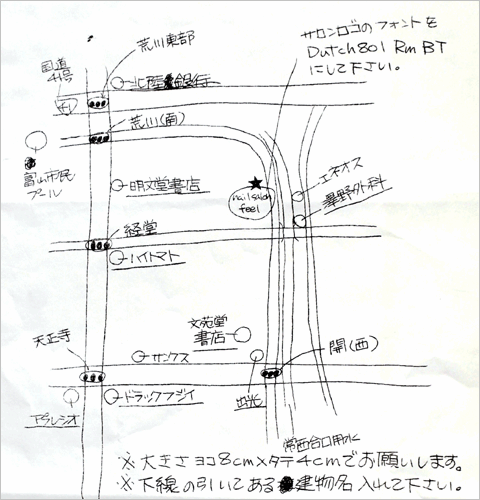 サロンロゴのフォントを
Dutch801 Rm BT
にして下さい。
荒川東部
国道
41号
41
北陸銀行
荒川(南)
富山市民
プール
明文堂書店
nail salon
feel
エネオス
経堂
ハイトマト
文苑堂
書店
天正寺
サンクス
開(西)
アプレシオ
ドラックフジイ
出光
常西合口用水
※大きさヨコ8cm×タテ4cmでお願いします。
※下線の引いてある建物名入れて下さい。